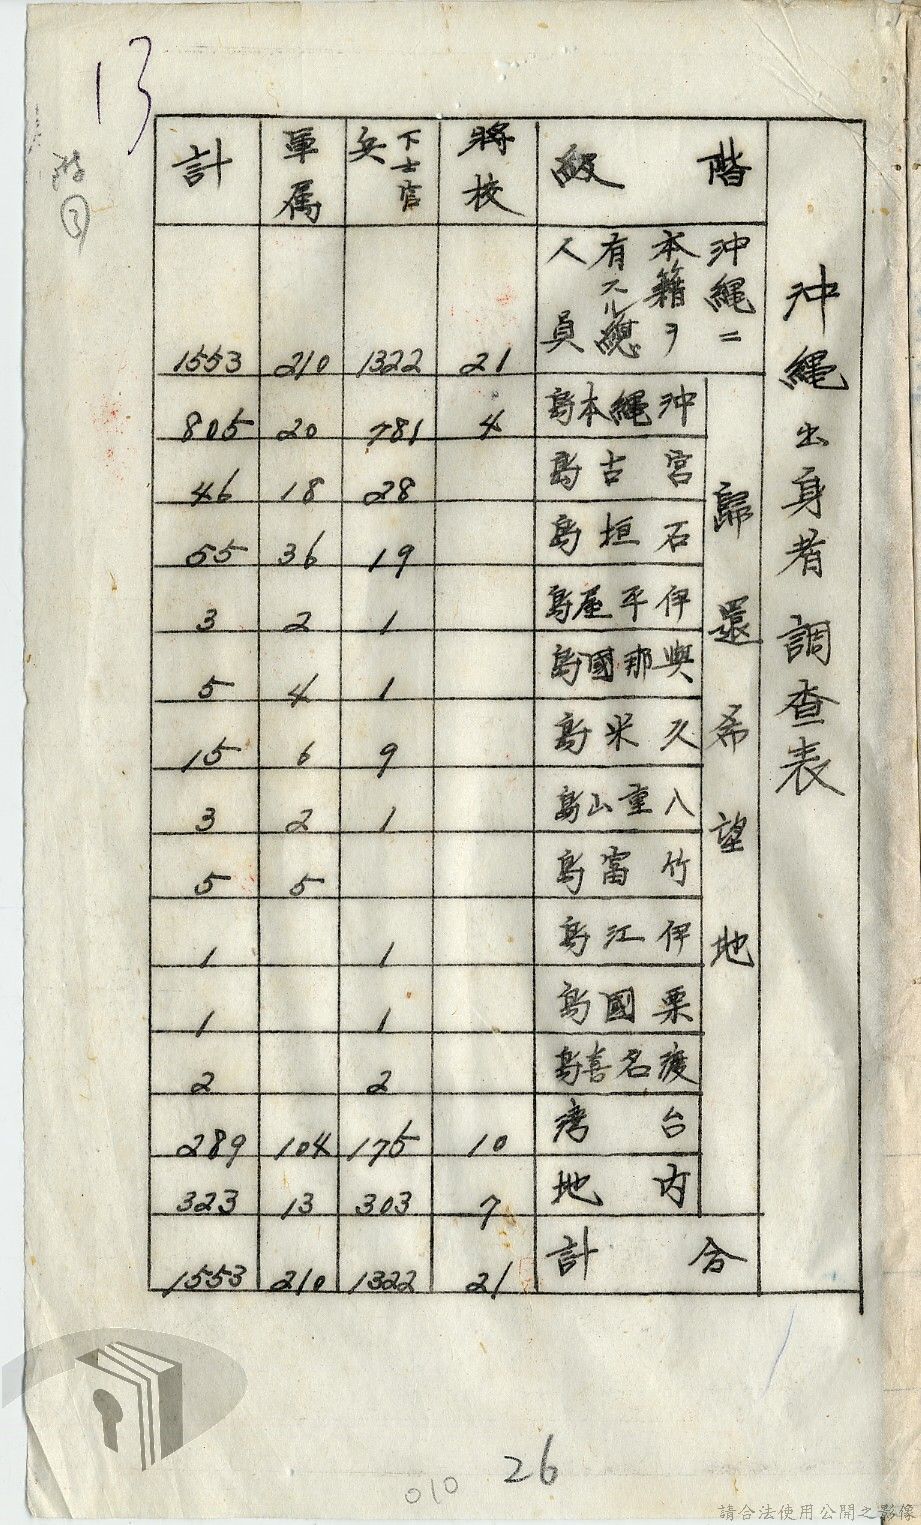 13
③
沖縄出身者調査表
階級 將校 下士官兵 軍属 計
沖縄ニ本籍ヲ有スル總人員 21 1322 210 1553
歸還希望地
沖縄本島 4 781 20 805
宮古島 28 18 46
石垣島 19 36 55
伊平屋島 1 2 3
與那國島 1 4 5
久米島 9 6 15
八重山島 1 2 3
竹富島 5 5
伊江島 1 1
栗國島 1 1
渡名喜島 2 2
台湾 10 175 104 289
内地 7 303 13 323
合計 21 1322 210 1553
26
010
請合法使用公開之影像